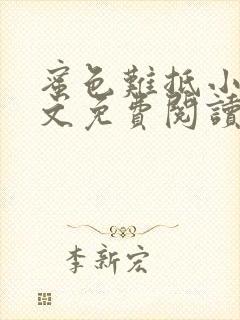 蜜色難抵小
文免費閱讀
李新宏